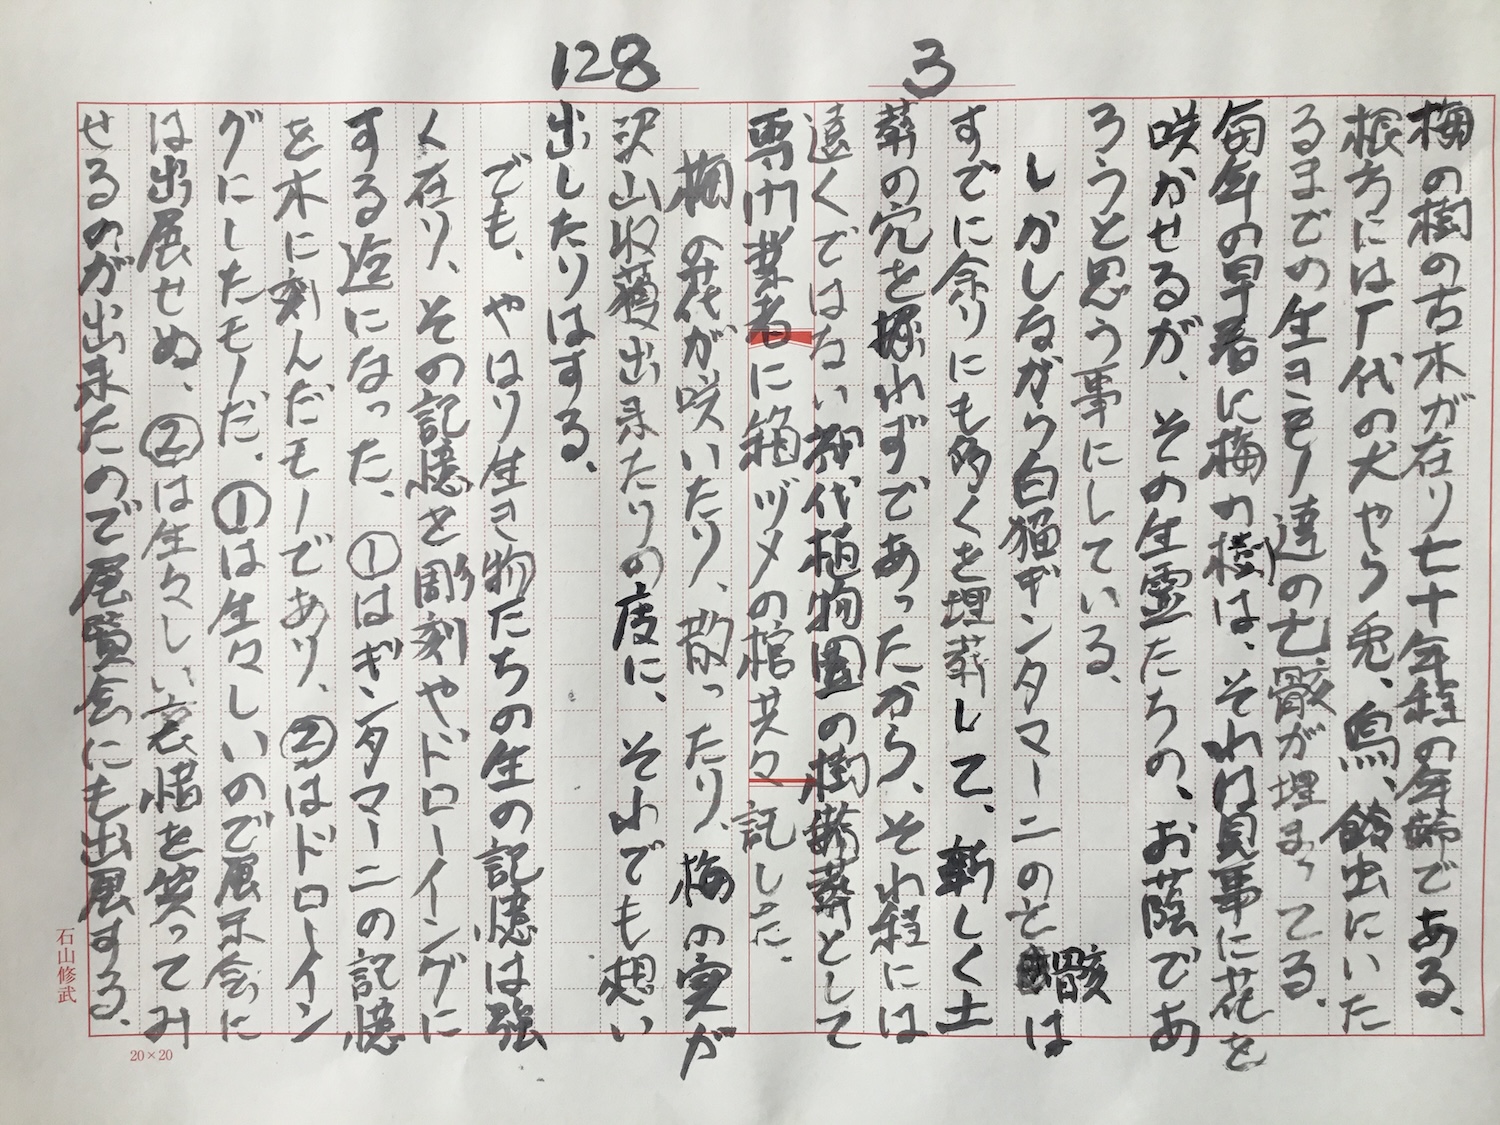 128
3
梅の樹の古木が在り七十年程の年齢である、
根方には厂代の犬やら兎、鳥、餓虫にいた
るまでの生きモノ達の亡骸が埋まってる、
毎年の早春に梅の樹は、それは見事に花を
咲かせるが、その生霊たちの、お蔭であ
ろうと思う事にしている、
しかしながら白猫ギンタマーニの亡骸は
すでに余りにも多くを埋葬して、新しく土
葬の穴を掘れずであったから、それ程には
遠くではない神代植物園の樹齢葬として
専門業者に箱ヅメの棺共々託した、
梅の花が咲いたり、散ったり、梅の実が
沢山収獲出来たりの度に、それでも想い
出したりはする、
でも、やはり生き物たちの生の記憶は強
く在り、その記憶を彫刻やドローイングに
する迄になった、①はギンタマーニの記憶
を木に刻んだモノであり、②はドローイン
グにしたモノだ、①は生々しいので展示会に
は出展せぬ、②は生々しい哀惜を笑ってみ
せるのが出来たので展覧会にも出展する、
石山修武
20×20